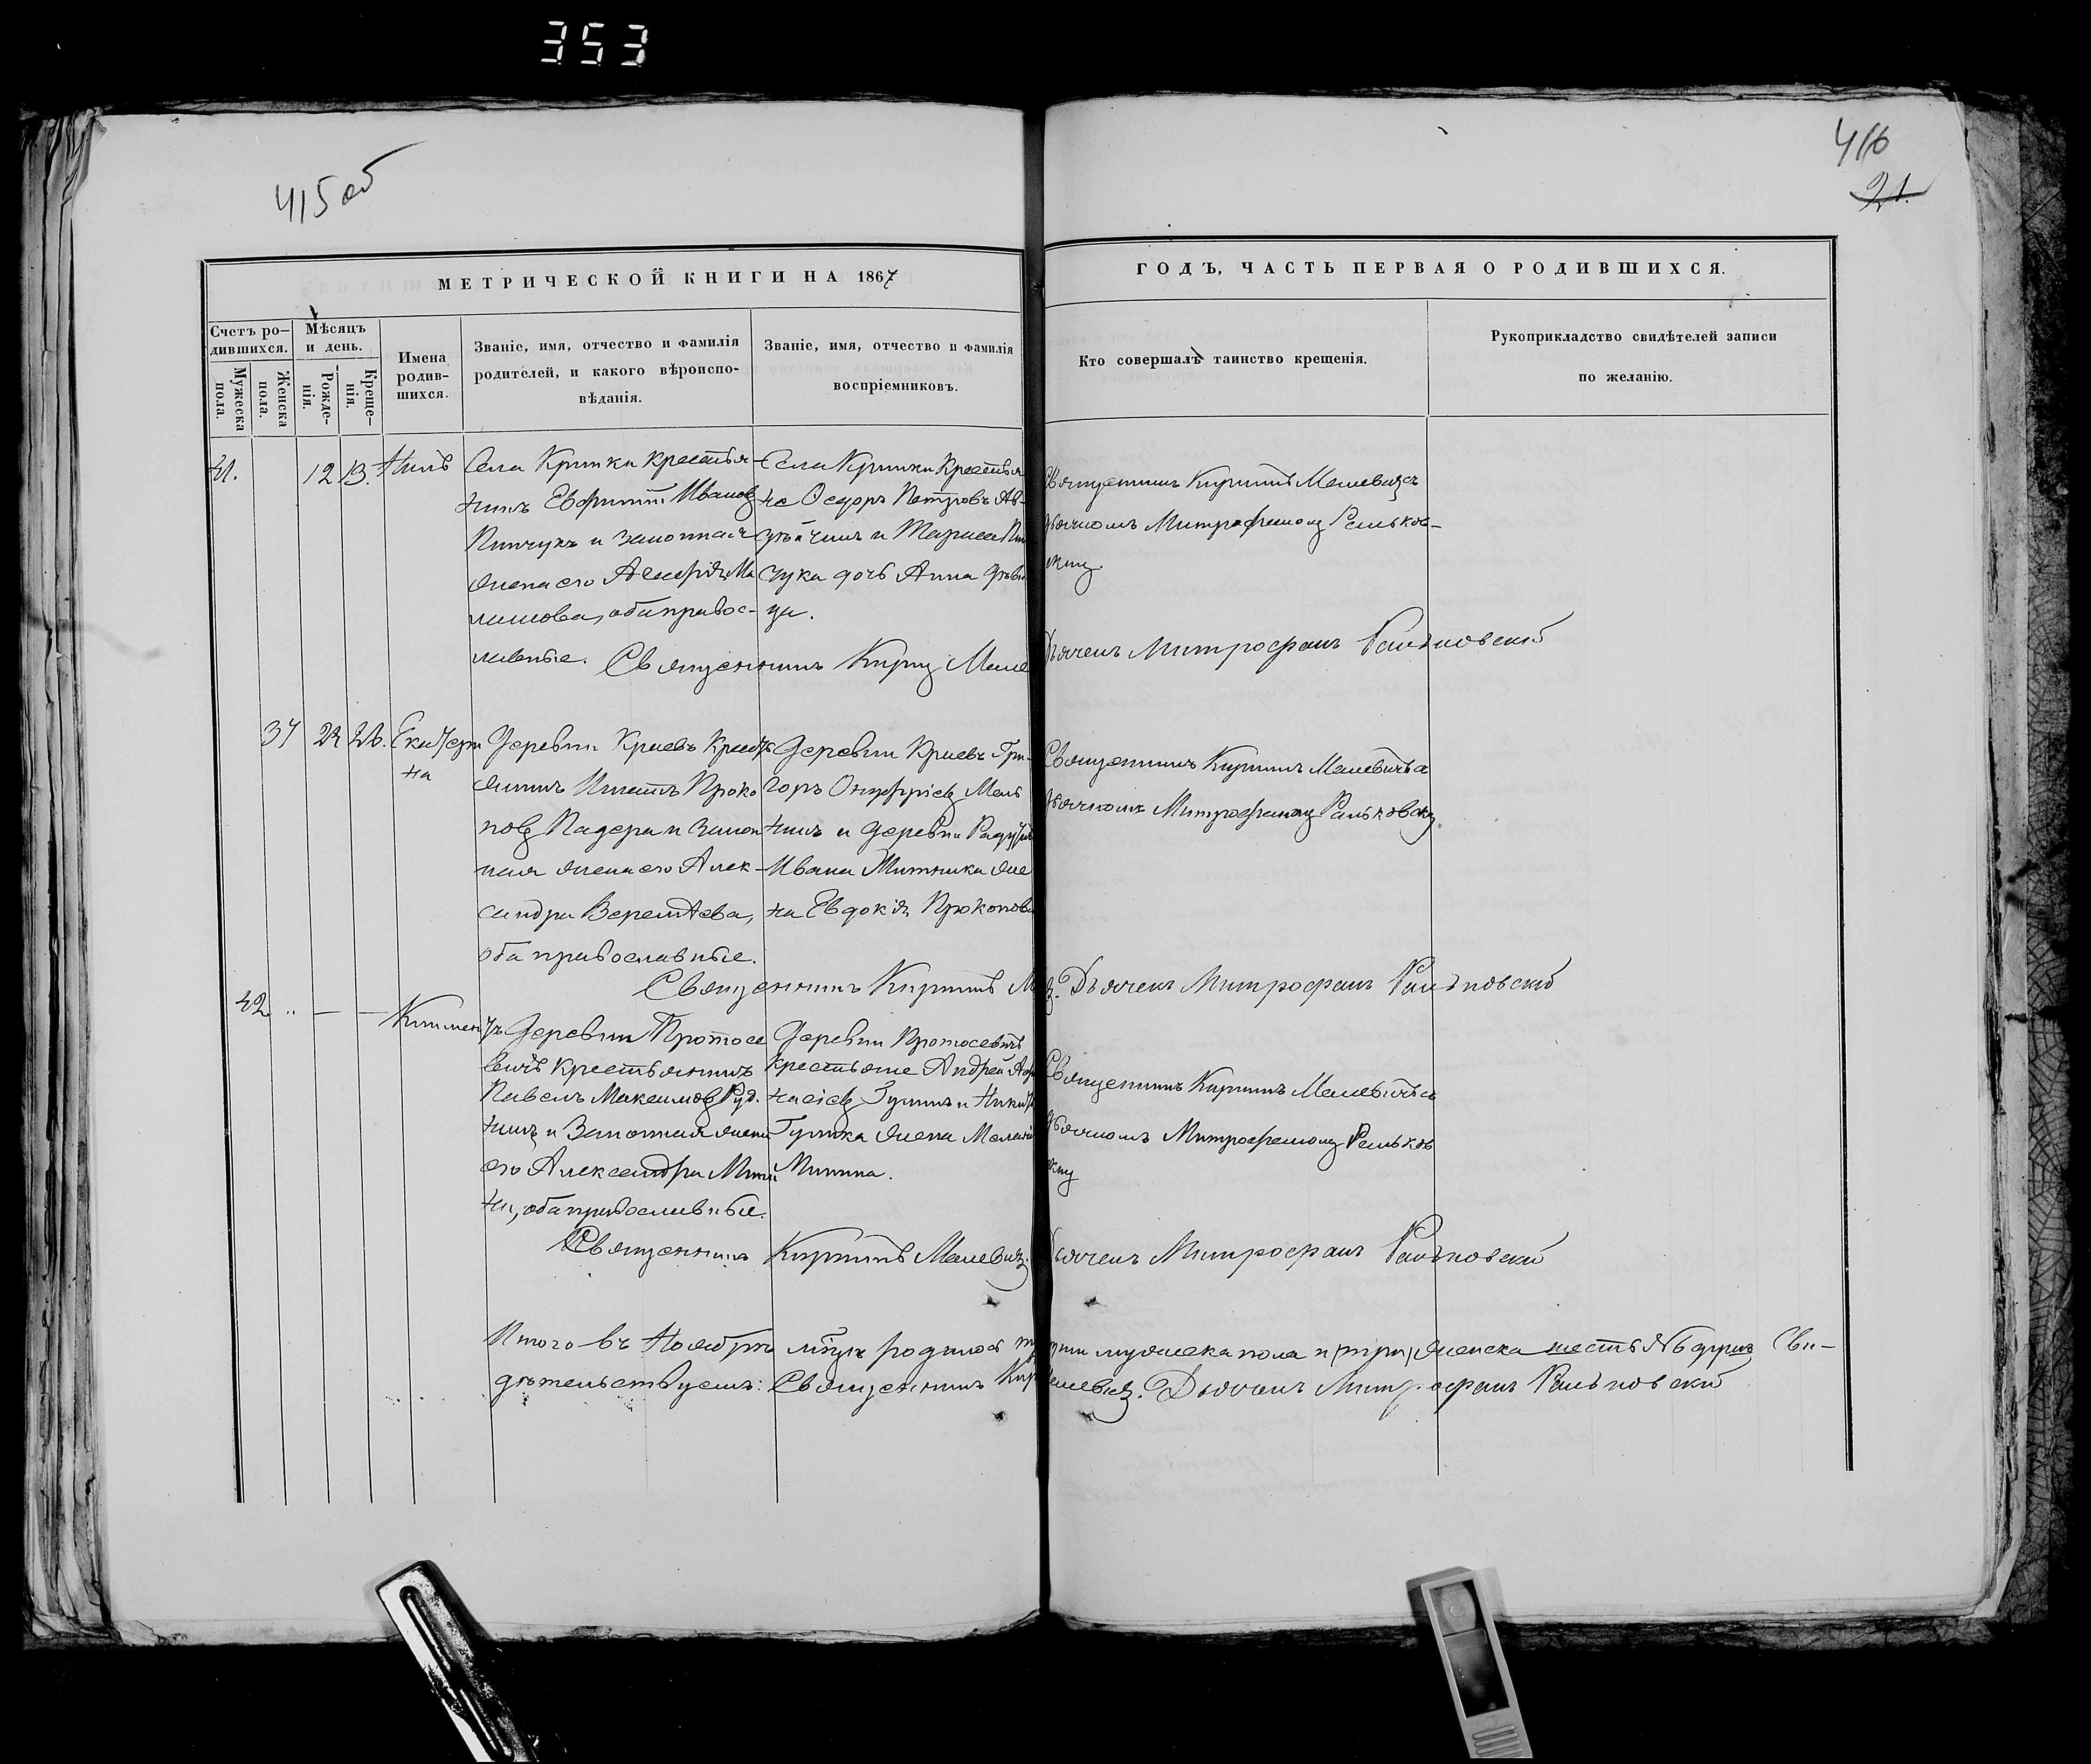 353
415 об
416
21.
МЕТРИЧЕСКОЙ КНИГИ НА 1867
ГОДЪ, ЧАСТЬ ПЕРВАЯ О РОДИВШИХСЯ.
Счетъ ро-
дившихся.
Мужеска
пола.
Женска
пола.
Мѣсяцъ
и день.
Рожде-
нія.
Креще-
нія.
Имена
родив-
шихся.
Званіе, имя, отчество и фамилія
родителей, и какого вѣроиспо-
вѣданія.
Званіе, имя, отчество и фамилія
воспріемниковъ.
Кто совершалъ таинство крещенія.
Рукоприкладство свидѣтелей записи
по желанію.
41.
12
13.
Нилъ
Села Кришки крестья-
нинъ Евфимій Ивановъ
Пинчукъ и законная
жена его
обаправос-
лавные.
Села Кришки Крестья
не Ѳедоръ Петровъ
и
чука дочь Анна дѣви
ца.
Священникъ Кириллъ Малевичъ съ
дьячкомъ Митрофаномъ Ральков-
скимъ.
Священникъ Кирил Мале
Дьячекъ Митрофанъ Ральковскій
37
24
26.
Екатери
на
Деревни Криевъ Крестья
янинъ Игнатъ Проко
повъ Падера и закон
ная жена его Алек-
сандра
оба православные.
Деревни Криевъ Гри-
горъ Онуфріевъ Мель
никъ и деревни
Ивана Митника же
на Евдокія Прокопова
Священникъ Кириллъ Малевичъ съ
дьячкомъ Митрофаномъ Ральковскимъ.
Священникъ Кириллъ М
Дьячекъ Митрофанъ Ральковскій
42
"
—
—
Климентъ
Деревни Протосе
вичъ крестьянинъ
Павелъ Максимовъ Руд.
никъ и Законная жена
его Александра Мини
на, оба православные.
Деревни Протосевичъ
крестьяне Андрей Афа
насіевъ Гулякъ и Никиты
Гуляка жена Меланія
Минина.
Священникъ Кириллъ Малевичъ съ
дьячкомъ Митрофаномъ Ральков
скимъ
Священникъ Кириллъ Малевичъ.
Дьячекъ Митрофанъ Ральковскій
Итого въ Ноябрѣ мѣсяцѣ родилось три мужеска пола и (три) женска шесть Сви-
дѣтельствуемъ: Священникъ Кир Малевичъ. Дьячекъ Митрофанъ Ральковскій